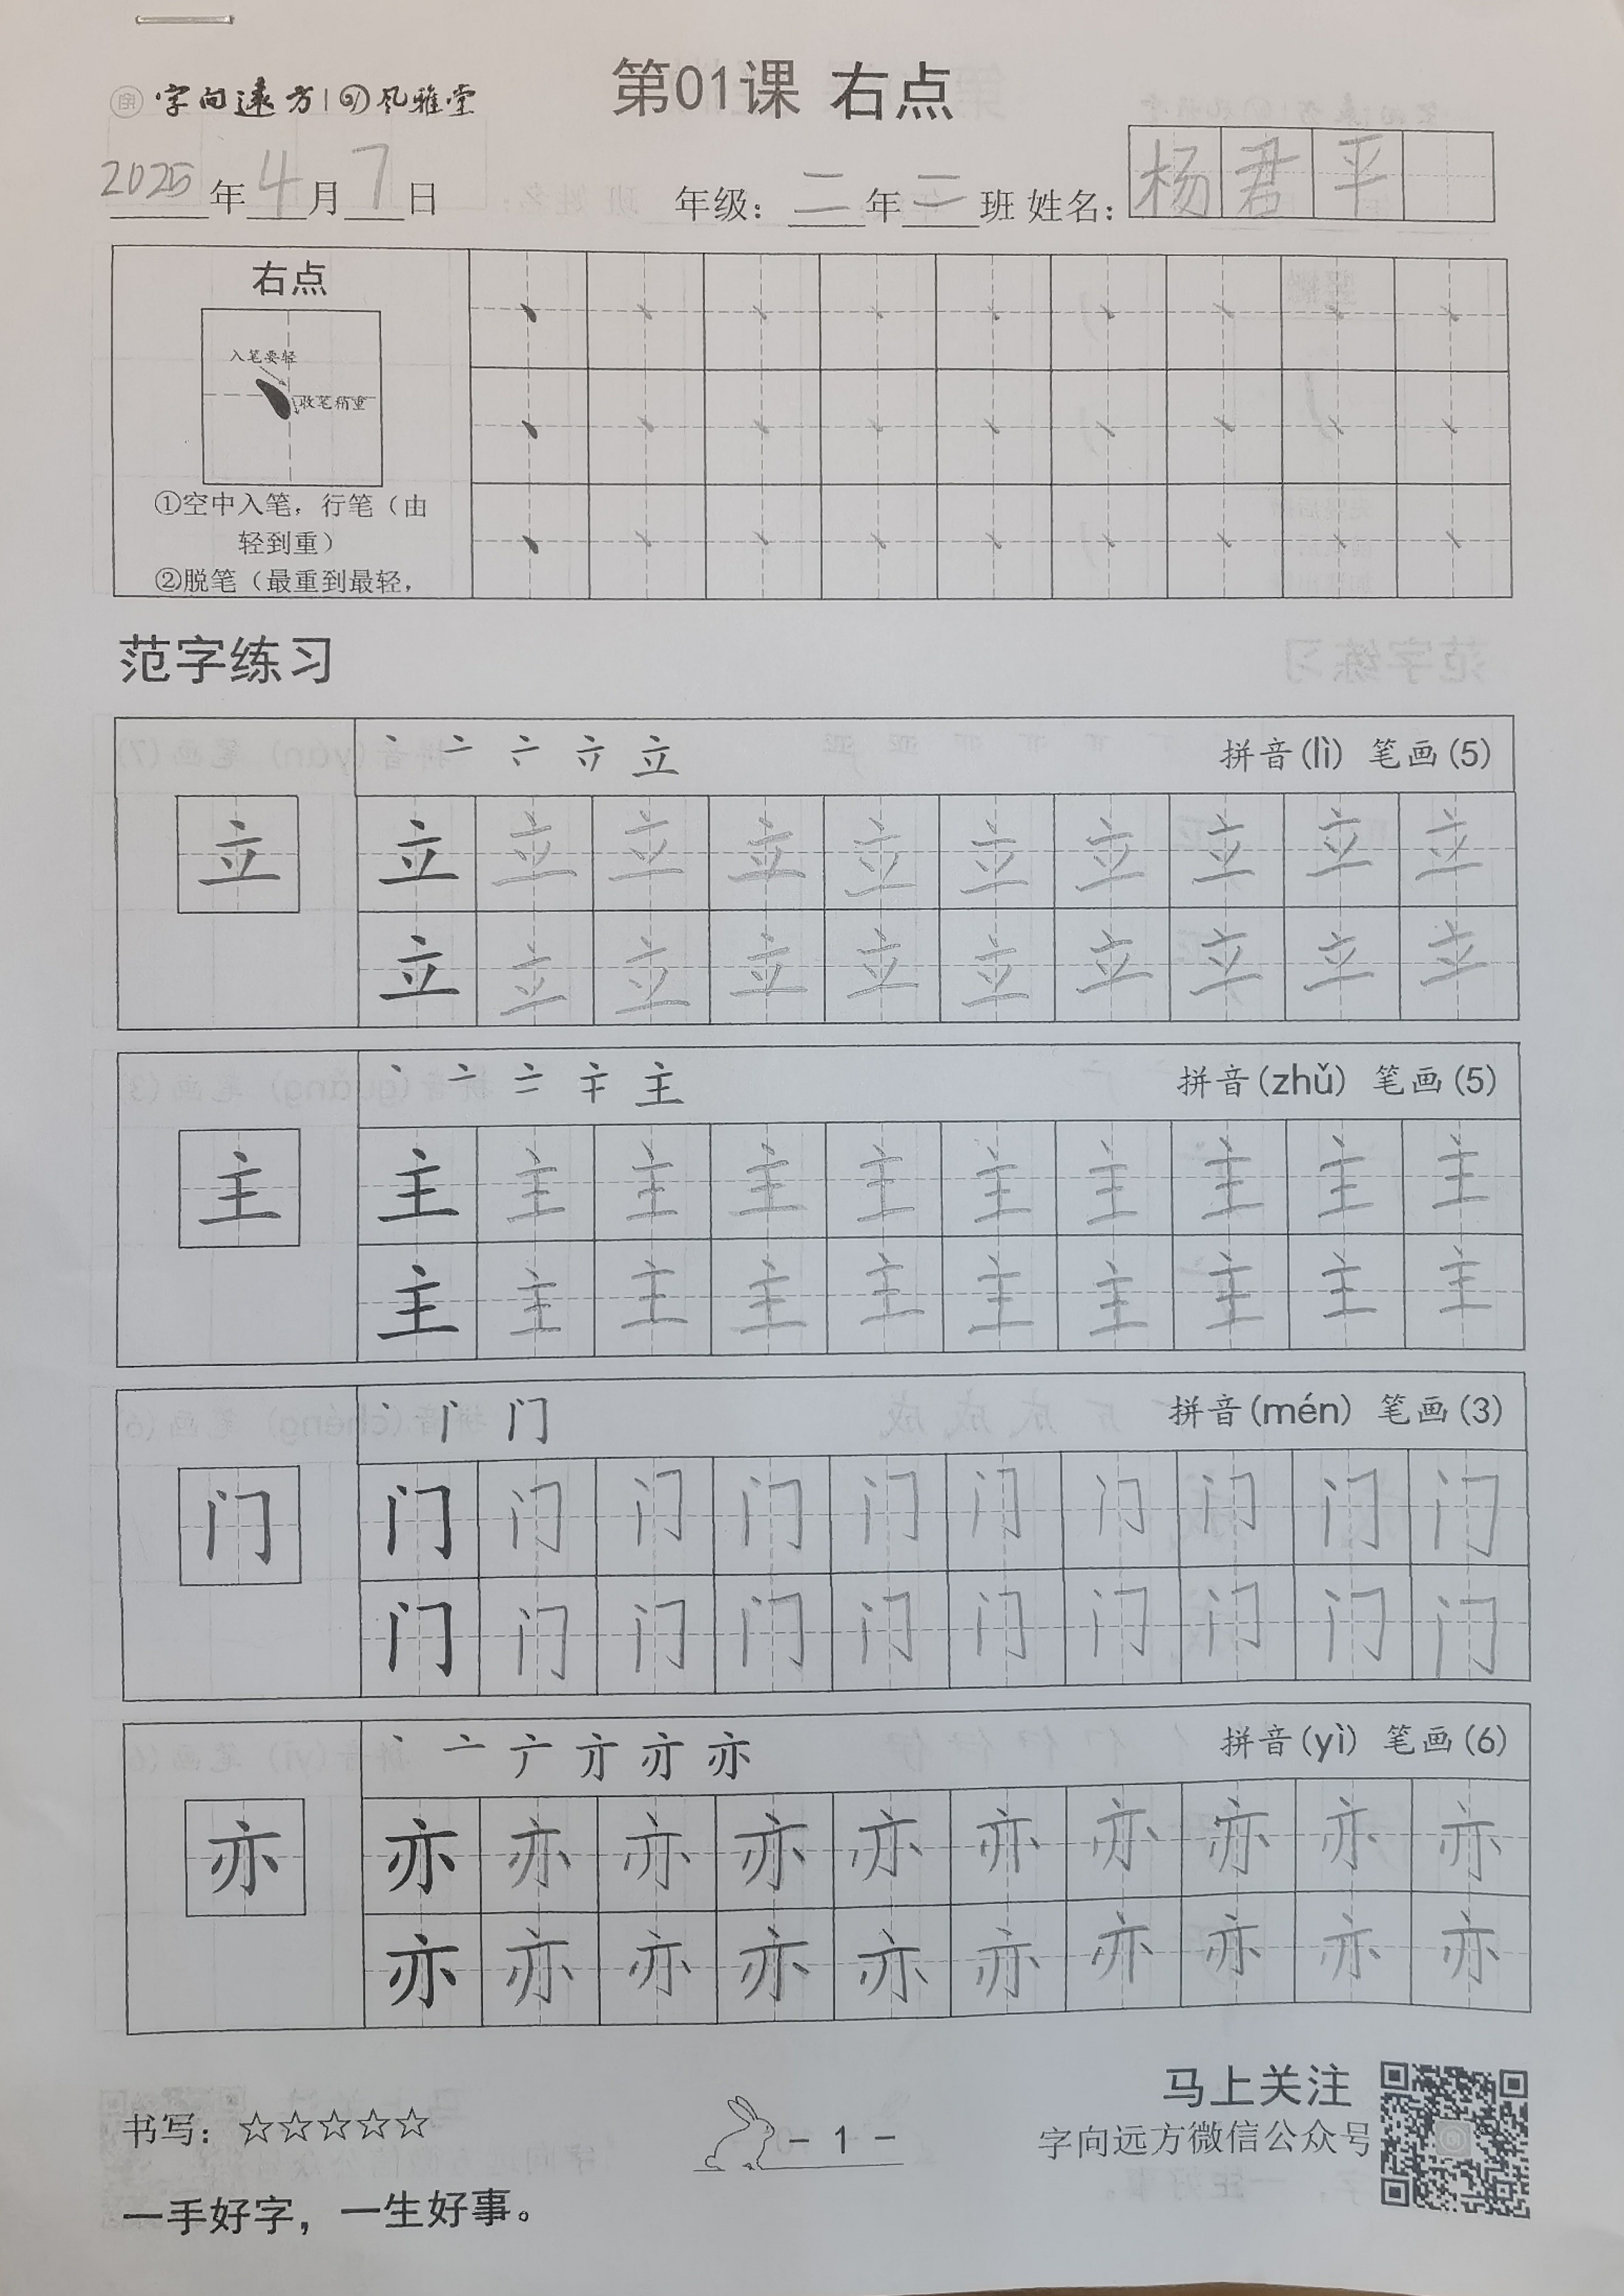 字向遠方 风雅堂
第01课 右点
2025年4月7日 年级：二年二班 姓名：杨君平
右点
入笔要轻
收笔稍重
①空中入笔，行笔（由
轻到重）
②脱笔（最重到最轻，
范字练习
立 拼音(lì) 笔画(5)
立 立 立 立 立 立 立 立 立 立 立
立 立 立 立 立 立 立 立 立 立
主 拼音(zhǔ) 笔画(5)
主 主 主 主 主 主 主 主 主 主 主
主 主 主 主 主 主 主 主 主 主
门 拼音(mén) 笔画(3)
门 门 门 门 门 门 门 门 门 门 门
门 门 门 门 门 门 门 门 门 门
亦 拼音(yì) 笔画(6)
亦 亦 亦 亦 亦 亦 亦 亦 亦 亦 亦
亦 亦 亦 亦 亦 亦 亦 亦 亦 亦
马上关注
书写：☆☆☆☆☆ - 1 - 字向远方微信公众号
一手好字，一生好事。